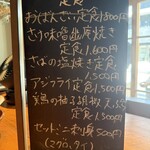 定食
おばんざい定食1,800円
さけの味噌幽庵焼き
定食1,600円
さばの塩焼き定食
1,500円
アジフライ定食1,500円
鶏の柚子胡椒
定食1,500円
セットドニ 刺身500円
(マグロ、タイ)